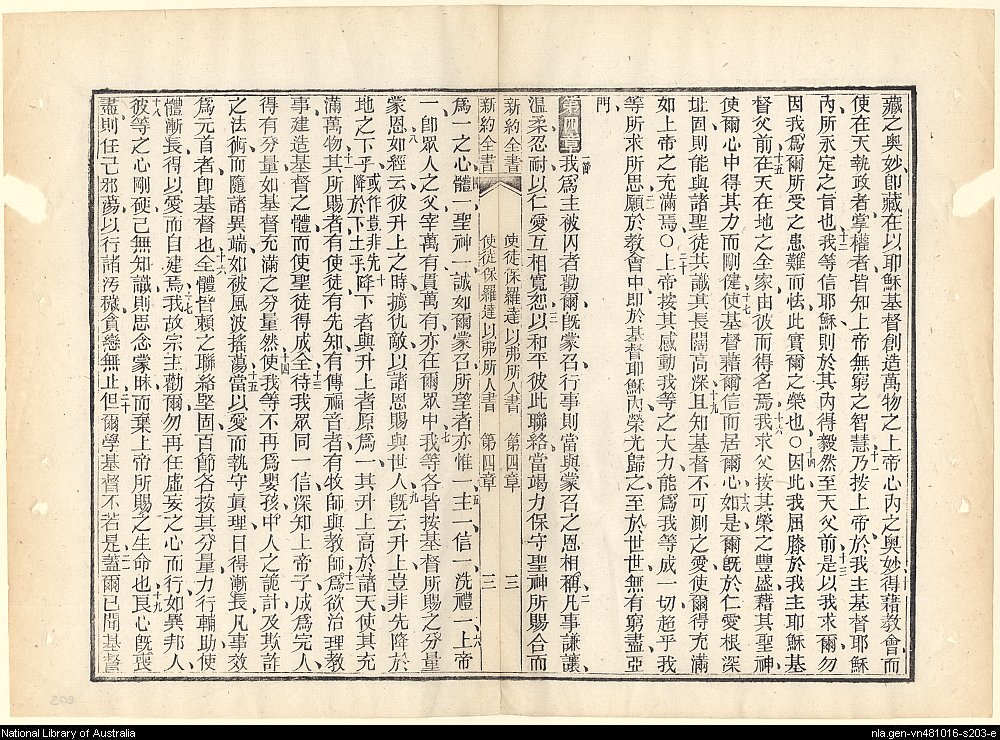 藏之奧妙卽藏在以耶穌基督創造萬物之上帝心內之奧妙得藉教會而
使在天執政者掌權者皆知上帝無窮之智慧乃按上帝於我主基督耶穌
內所永定之旨也我等信耶穌則於其內得毅然至天父前是以我求爾勿
因我爲爾所受之患難而怯此實爾之榮也〇因此我屈膝於我主耶穌基
督父前在天在地之全家由彼而得名焉我求父按其榮之豐盛藉其聖神
使爾心中得其力而剛健使基督藉爾信而居爾心如是爾旣於仁愛根深
址固則能與諸聖徒共識其長闊高深且知基督不可測之愛使爾得充滿
如上帝之充滿焉〇上帝按其感動我等之大力能爲我等成一切超乎我
等所求所思願於教會中即於基督耶穌內榮光歸之至於世世無有窮盡亞
門
第四章我爲主被囚者勸爾旣蒙召行事則當與蒙召之恩相稱凡事謙讓
溫柔忍耐以仁愛互相寬恕以和平彼此聯絡當竭力保守聖神所賜合而
新約全書 使徒保羅達以弗所人書 第四章 三
新約全書 使徒保羅達以弗所人書 第四章 三
爲一之心體一聖神一誠如爾蒙召所望者亦惟一主一信一洗禮一上帝
一卽眾人之父宰萬有貫萬有亦在爾眾中我等各皆按基督所賜之分量
蒙恩如經云彼升上之時擄仇敵以諸恩賜與世人旣云升上豈非先降於
地之下乎或作豈非先降於下土乎降下者與升上者原爲一其升上高於諸天使其充
滿萬物其所賜者有使徒有先知有傳福音者有牧師與教師爲欲治理教
事建造基督之體而使聖徒得成全待我眾同一信深知上帝子成爲完人
得有分量如基督充滿之分量然使我等不再爲嬰孩中人之詭計及欺詐
之法術而隨諸異端如被風波搖蕩當以愛而執守眞理日得漸長凡事效
爲元首者卽基督也全體皆賴之聯絡堅固百節各按其分量力行輔助使
體漸長得以愛而自建焉我故宗主勸爾勿再任虛妄之心而行如異邦人
彼等之心剛硬己無知識則思念蒙昧而棄上帝所賜之生命也良心旣喪
盡則任己邪蕩以行諸汚穢貪戀無止但爾學基督不若是蓋爾已聞基督